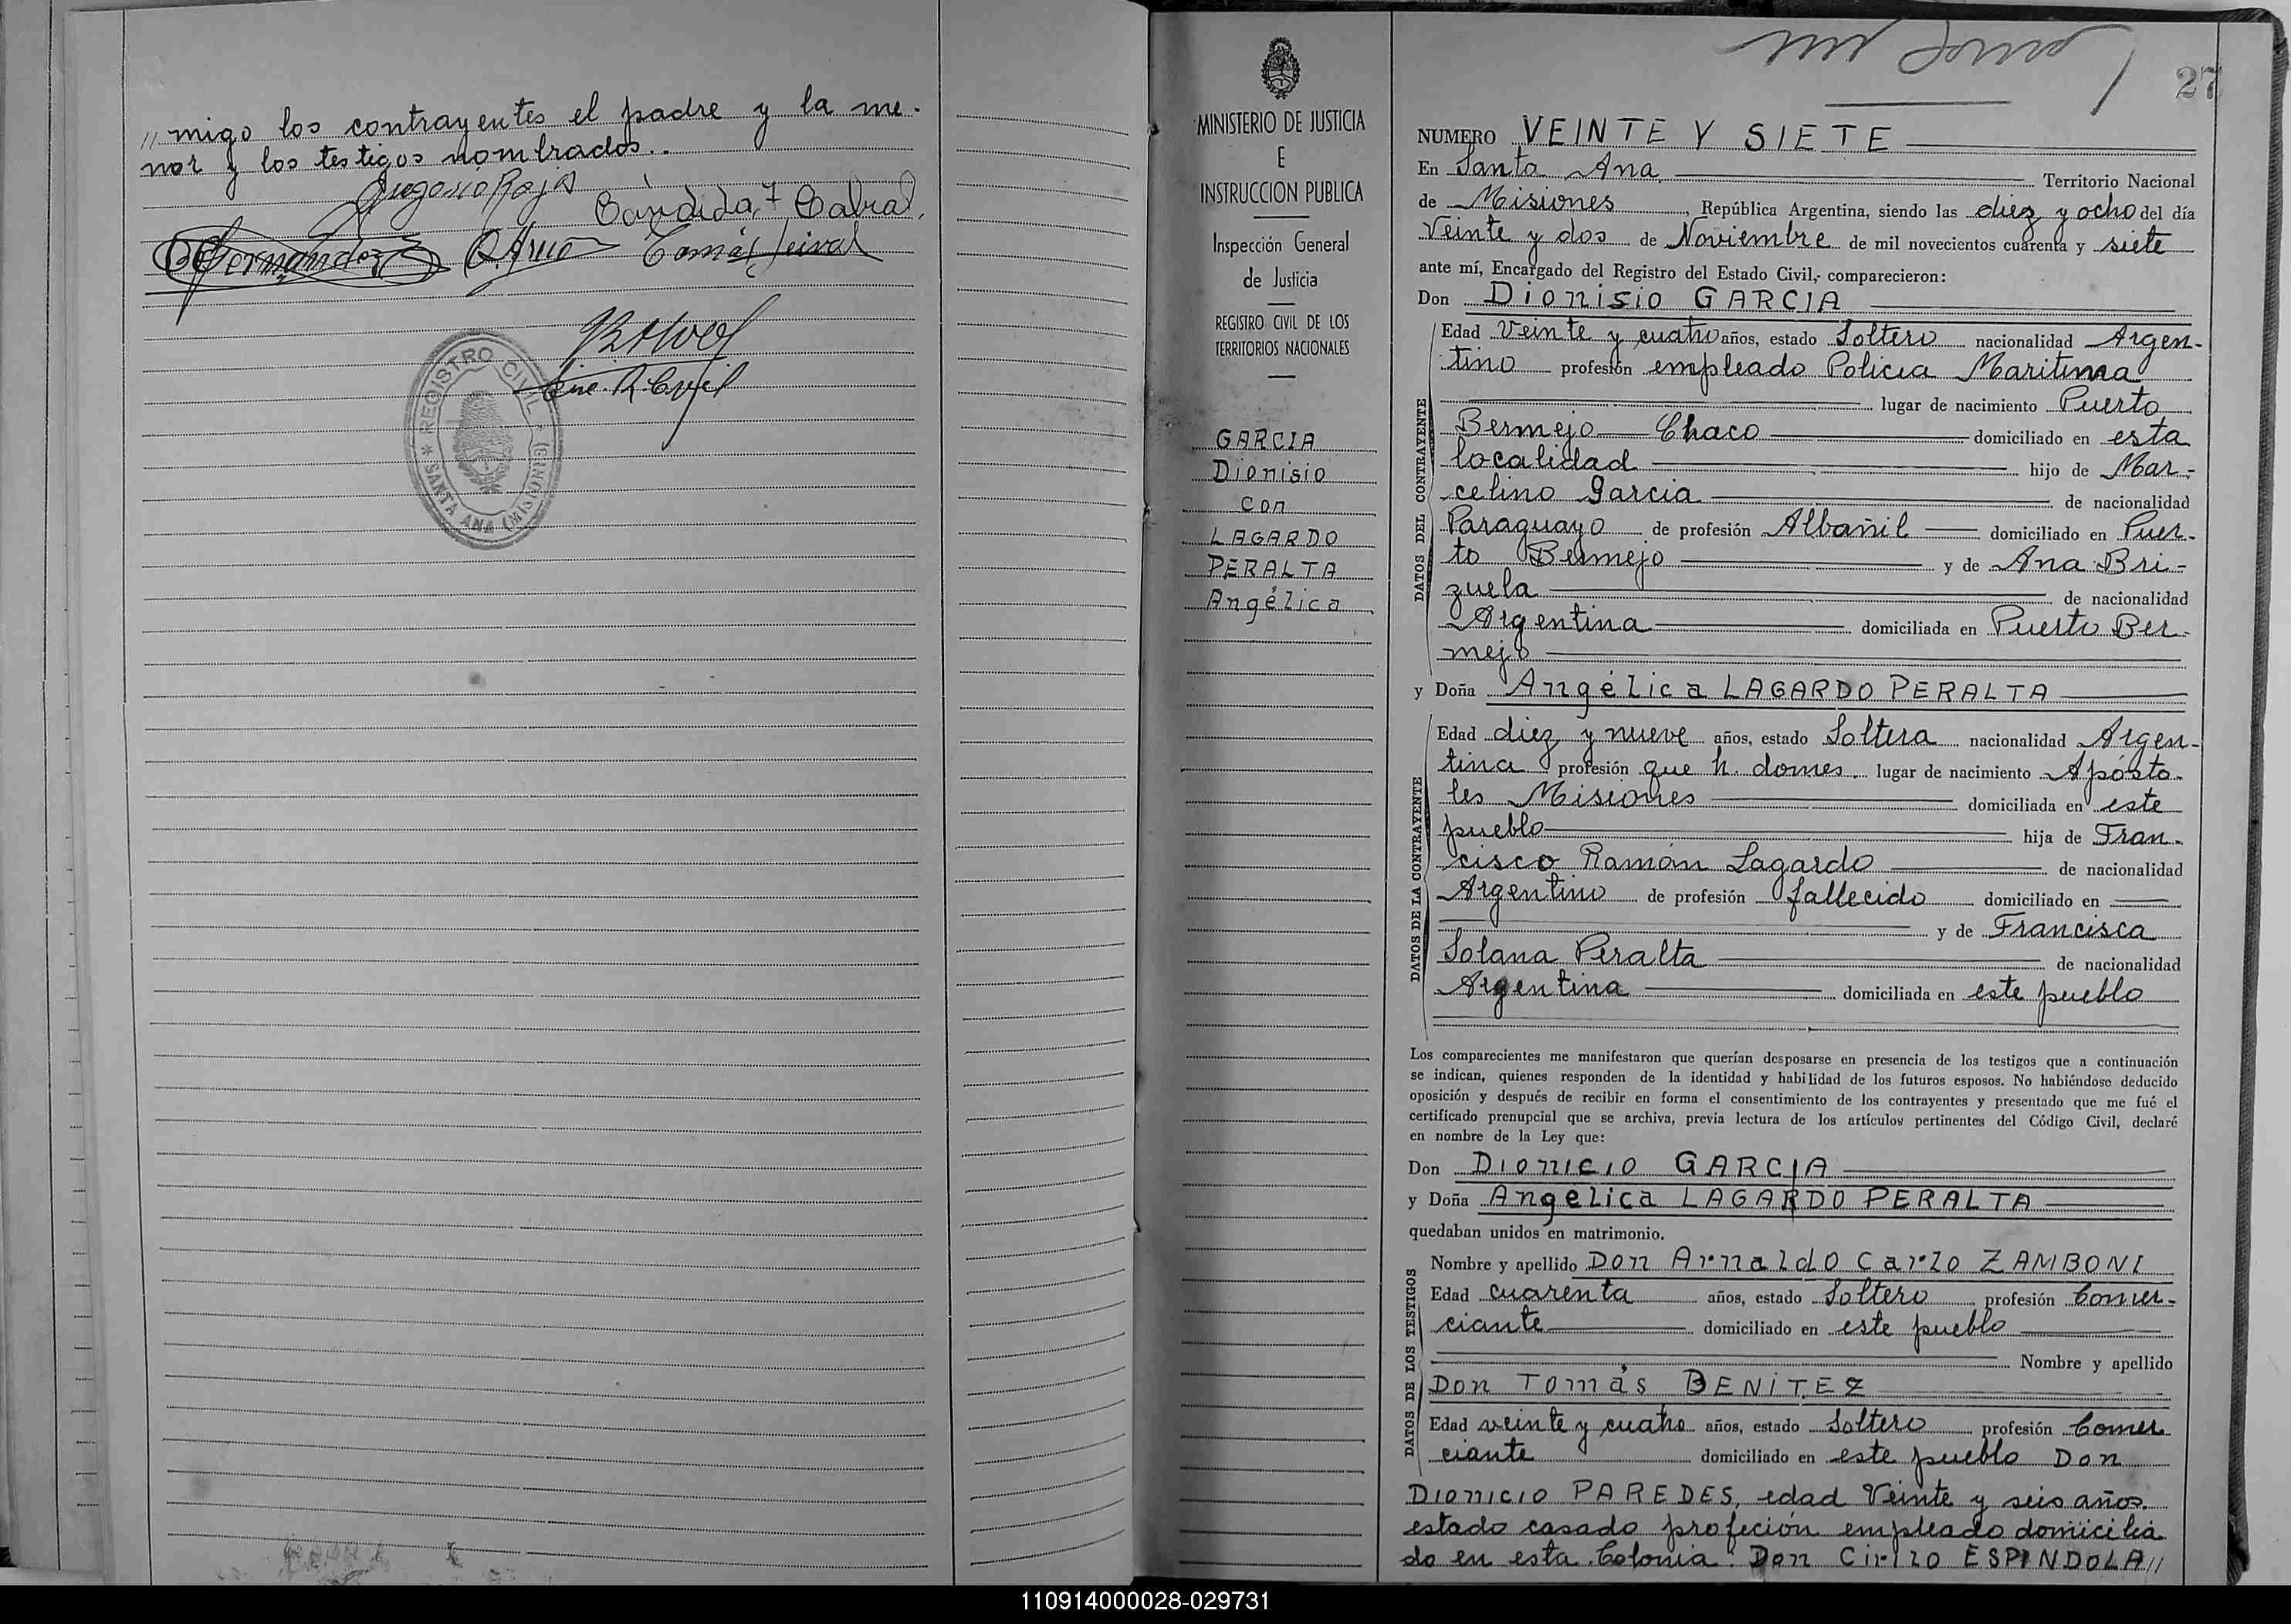 // migo los contrayentes el padre y la me-
nor y los testigos nombrados..
Gregorio Rojas
Cándida + Cabral
Hernandez
Tomás Leiva
REGISTRO CIVIL
* SANTA ANA (MISIONES) *
27
MINISTERIO DE JUSTICIA
E
INSTRUCCION PUBLICA
Inspección General
de Justicia
REGISTRO CIVIL DE LOS
TERRITORIOS NACIONALES
GARCIA
Dionisio
con
LAGARDO
PERALTA
Angélica
NUMERO VEINTE Y SIETE
En Santa Ana Territorio Nacional
de Misiones, República Argentina, siendo las diez y ocho del día
Veinte y dos de Noviembre de mil novecientos cuarenta y siete
ante mí, Encargado del Registro del Estado Civil,- comparecieron:
Don Dionisio GARCIA
DATOS DEL CONTRAYENTE
Edad Veinte y cuatro años, estado Soltero nacionalidad Argen-
tino profesión empleado Policia Maritima
lugar de nacimiento Puerto
Bermejo Chaco domiciliado en esta
localidad hijo de Mar-
celino Garcia de nacionalidad
Paraguayo de profesión Albañil domiciliado en Puer-
to Bermejo y de Ana Bri-
zuela de nacionalidad
Argentina domiciliada en Puerto Ber-
mejo
y Doña Angélica LAGARDO PERALTA
DATOS DE LA CONTRAYENTE
Edad diez y nueve años, estado Soltera nacionalidad Argen-
tina profesión que h. domes. lugar de nacimiento Apósto-
les Misiones domiciliada en este
pueblo hija de Fran-
cisco Ramón Lagardo de nacionalidad
Argentino de profesión fallecido domiciliado en
y de Francisca
Solana Peralta de nacionalidad
Argentina domiciliada en este pueblo
Los comparecientes me manifestaron que querían desposarse en presencia de los testigos que a continuación
se indican, quienes responden de la identidad y habilidad de los futuros esposos. No habiéndose deducido
oposición y después de recibir en forma el consentimiento de los contrayentes y presentado que me fué el
certificado prenupcial que se archiva, previa lectura de los artículos pertinentes del Código Civil, declaré
en nombre de la Ley que:
Don Dionicio GARCIA
y Doña Angelica LAGARDO PERALTA
quedaban unidos en matrimonio.
DATOS DE LOS TESTIGOS
Nombre y apellido Don Arnaldo Carlo ZAMBONI
Edad cuarenta años, estado Soltero profesión Comer-
ciante domiciliado en este pueblo
Nombre y apellido
Don Tomás BENITEZ
Edad veinte y cuatro años, estado Soltero profesión Comer
ciante domiciliado en este pueblo Don
Dionicio PAREDES, edad Veinte y seis años.
estado casado profeción empleado domicilia
do en esta Colonia. Don Cirilo ESPINDOLA //
110914000028-029731